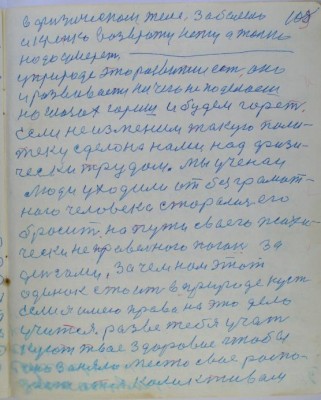 в физическом теле. Заболею 105
и крепко возвращ нету а только
надо умереть.
у природе это развитии ест, оно
и развивается ничего не поделаеш
на глазах гориш и будем горет.
Если не изменим такую поли-
тику сделона нами над физи-
чески трудом. Мы ученаи
люди уходили от безграмот-
ного человека старались его
бросит на пути своего
чески не правельного погон за
денгами, Зачем нам этот
одинок стоит в природе куст
Если я имею права на это дело
учится, разве тебя учат
куст твое Здоровье чтобы
оно заняло место свое распо-
Коликтивам